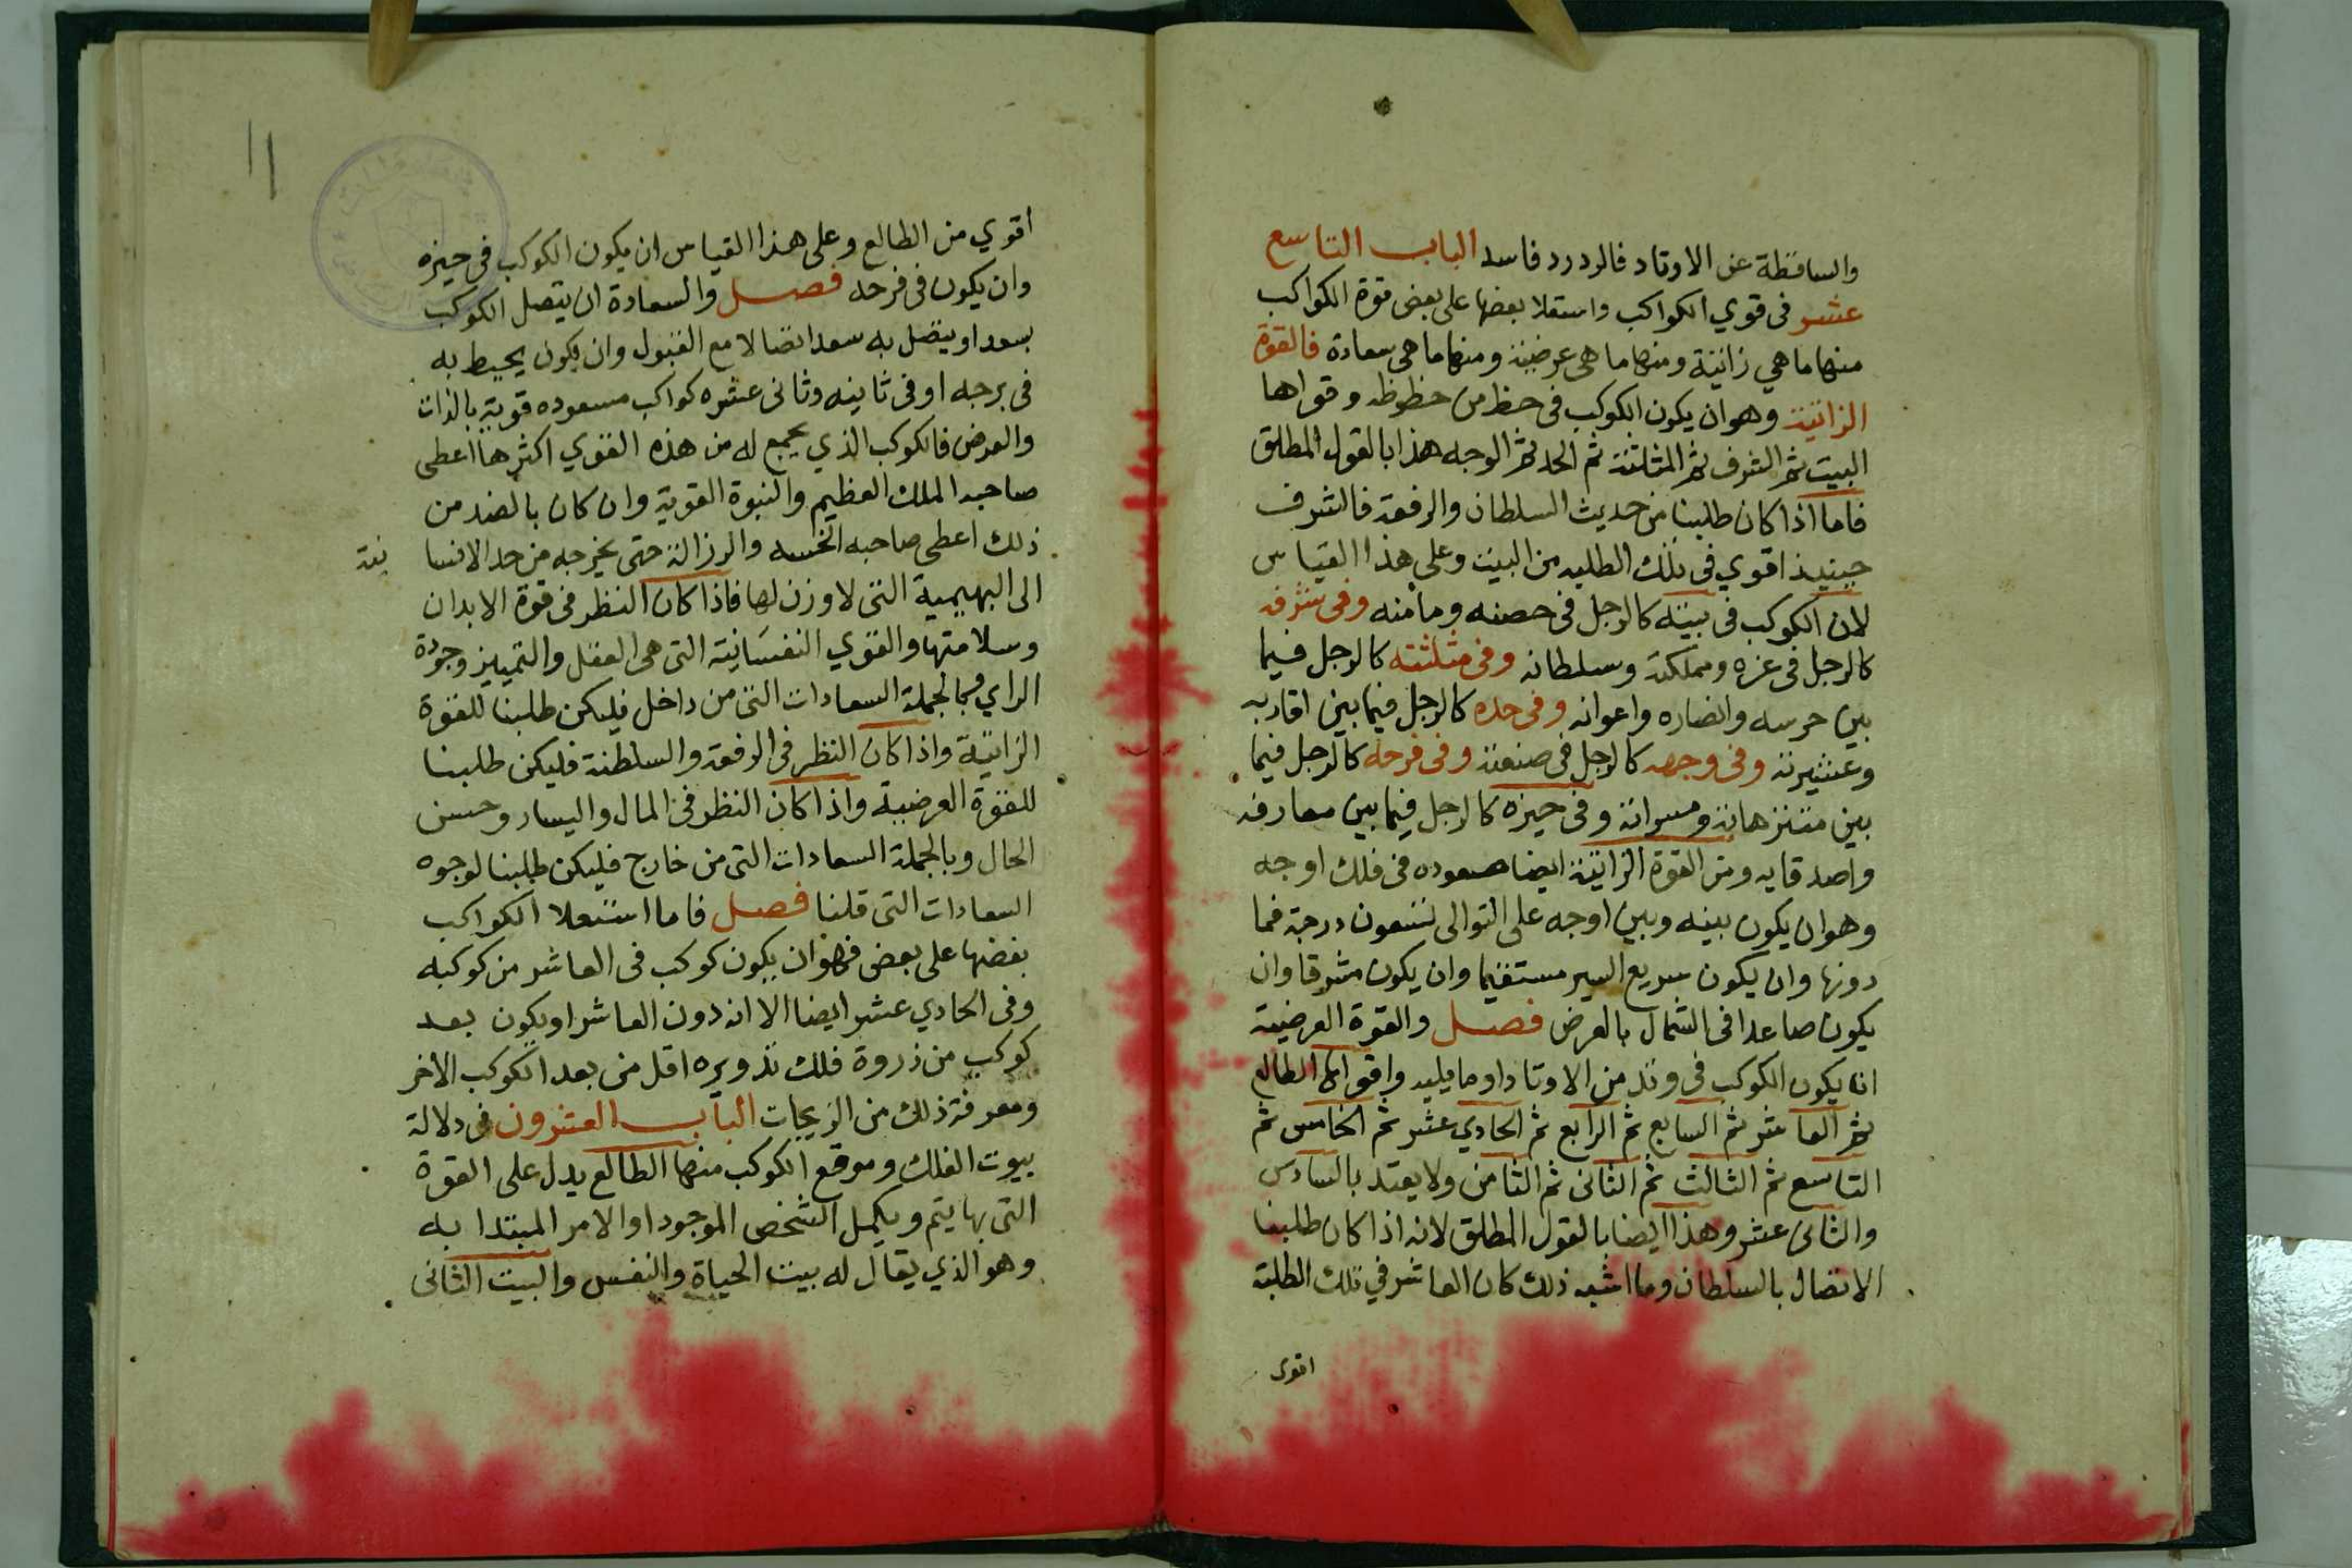 والساقطة عن الاوتاد فالردرد فاسد الباب التاسع
عشر فى قوي الكواكب واستعلا بعضها على بعض قوة الكواكب
منها ما هي ذاتية ومنها ما هى عرضية ومنها ما هى سعادة فالقوة
الذاتية وهو ان يكون الكوكب فى حظ من حظوظه وقواها
البيت ثم الشرف ثم المثلثة ثم الحد ثم الوجه هذا بالقول المطلق
فاما اذا كان طلبنا من حديث السلطان والرفعة فالشرف
حينيذ اقوي فى تلك الطلبه من البيت وعلى هذا القياس
لان الكوكب فى بيته كالرجل فى حصنه ومأمنه وفى شرفه
كالرجل فى عزه ومملكته وسلطانه وفى مثلثته كالرجل فيما
بين حرسه وانصاره واعوانه وفى حده كالرجل فيما بين اقاربه
وعشيرته وفى وجهه كالرجل فى صنعته وفى فرحه كالرجل فيما
بين متنزهاته ومسراته وفى حيزه كالرجل فيما بين معارفه
واصدقايه ومن القوة الذاتية ايضا صعوده فى فلك اوجه
وهو ان يكون بينه وبين اوجه على التوالى تسعون درجة فما
دونها وان يكون سريع السير مستقيما وان يكون مشرقا وان
يكون صاعدا فى الشمال بالعرض فصل والقوة العرضية
ان يكون الكوكب فى وتد من الاوتاد او ما يليه واقواها الطالع
ثم العاشر ثم السابع ثم الرابع ثم الحادي عشر ثم الخامس ثم
التاسع ثم الثالث ثم الثانى ثم الثامن ولا يعتد بالسادس
والثانى عشر وهذا ايضا بالقول المطلق لانه اذا كان طلبنا
الاتصال بالسلطان وما اشبه ذلك كان العاشر في تلك الطلبة
اقوى
اقوي من الطالع وعلى هذا القياس ان يكون الكوكب فى حيزه
وان يكون فى فرحه فصل والسعادة ان يتصل الكوكب
بسعد او يتصل به سعد اتصالا مع القبول وان يكون يحيط به
فى برجه او فى ثانيه وثانى عشره كواكب مسعوده قوية بالذات
والعرض فالكوكب الذي يجمع له من هذه القوي اكثرها اعطى
صاحبه الملك العظيم والنبوة القوية وان كان بالضد من
ذلك اعطى صاحبه الخسه والرزالة حتى يخرجه من حد الانسا
نية
الى البهيمية التى لا وزن لها فاذا كان النظر فى قوة الابدان
وسلامتها والقوي النفسانية التى هى العقل والتمييز وجودة
الراي وبالجملة السعادات التى من داخل فليكن طلبنا للقوة
الذاتية واذا كان النظر فى الرفعة والسلطنة فليكن طلبنا
للقوة العرضية واذا كان النظر فى المال واليسار وحسن
الحال وبالجملة السعادات التى من خارج فليكن طلبنا لوجوه
السعادات التى قلنا فصل فاما استعلا الكواكب
بعضها على بعض فهو ان يكون كوكب فى العاشر من كوكبه
وفى الحادي عشر ايضا الا انه دون العاشر او يكون بعد
كوكب من ذروة فلك تدويره اقل من بعد الكوكب الاخر
ومعرفة ذلك من الزيجات الباب العشرون فى دلالة
بيوت الفلك وموقع الكوكب منها الطالع يدل على القوة
التى بها يتم ويكمل الشخص الموجود او الامر المبتدا به
وهو الذي يقال له بيت الحياة والنفس والبيت الثانى